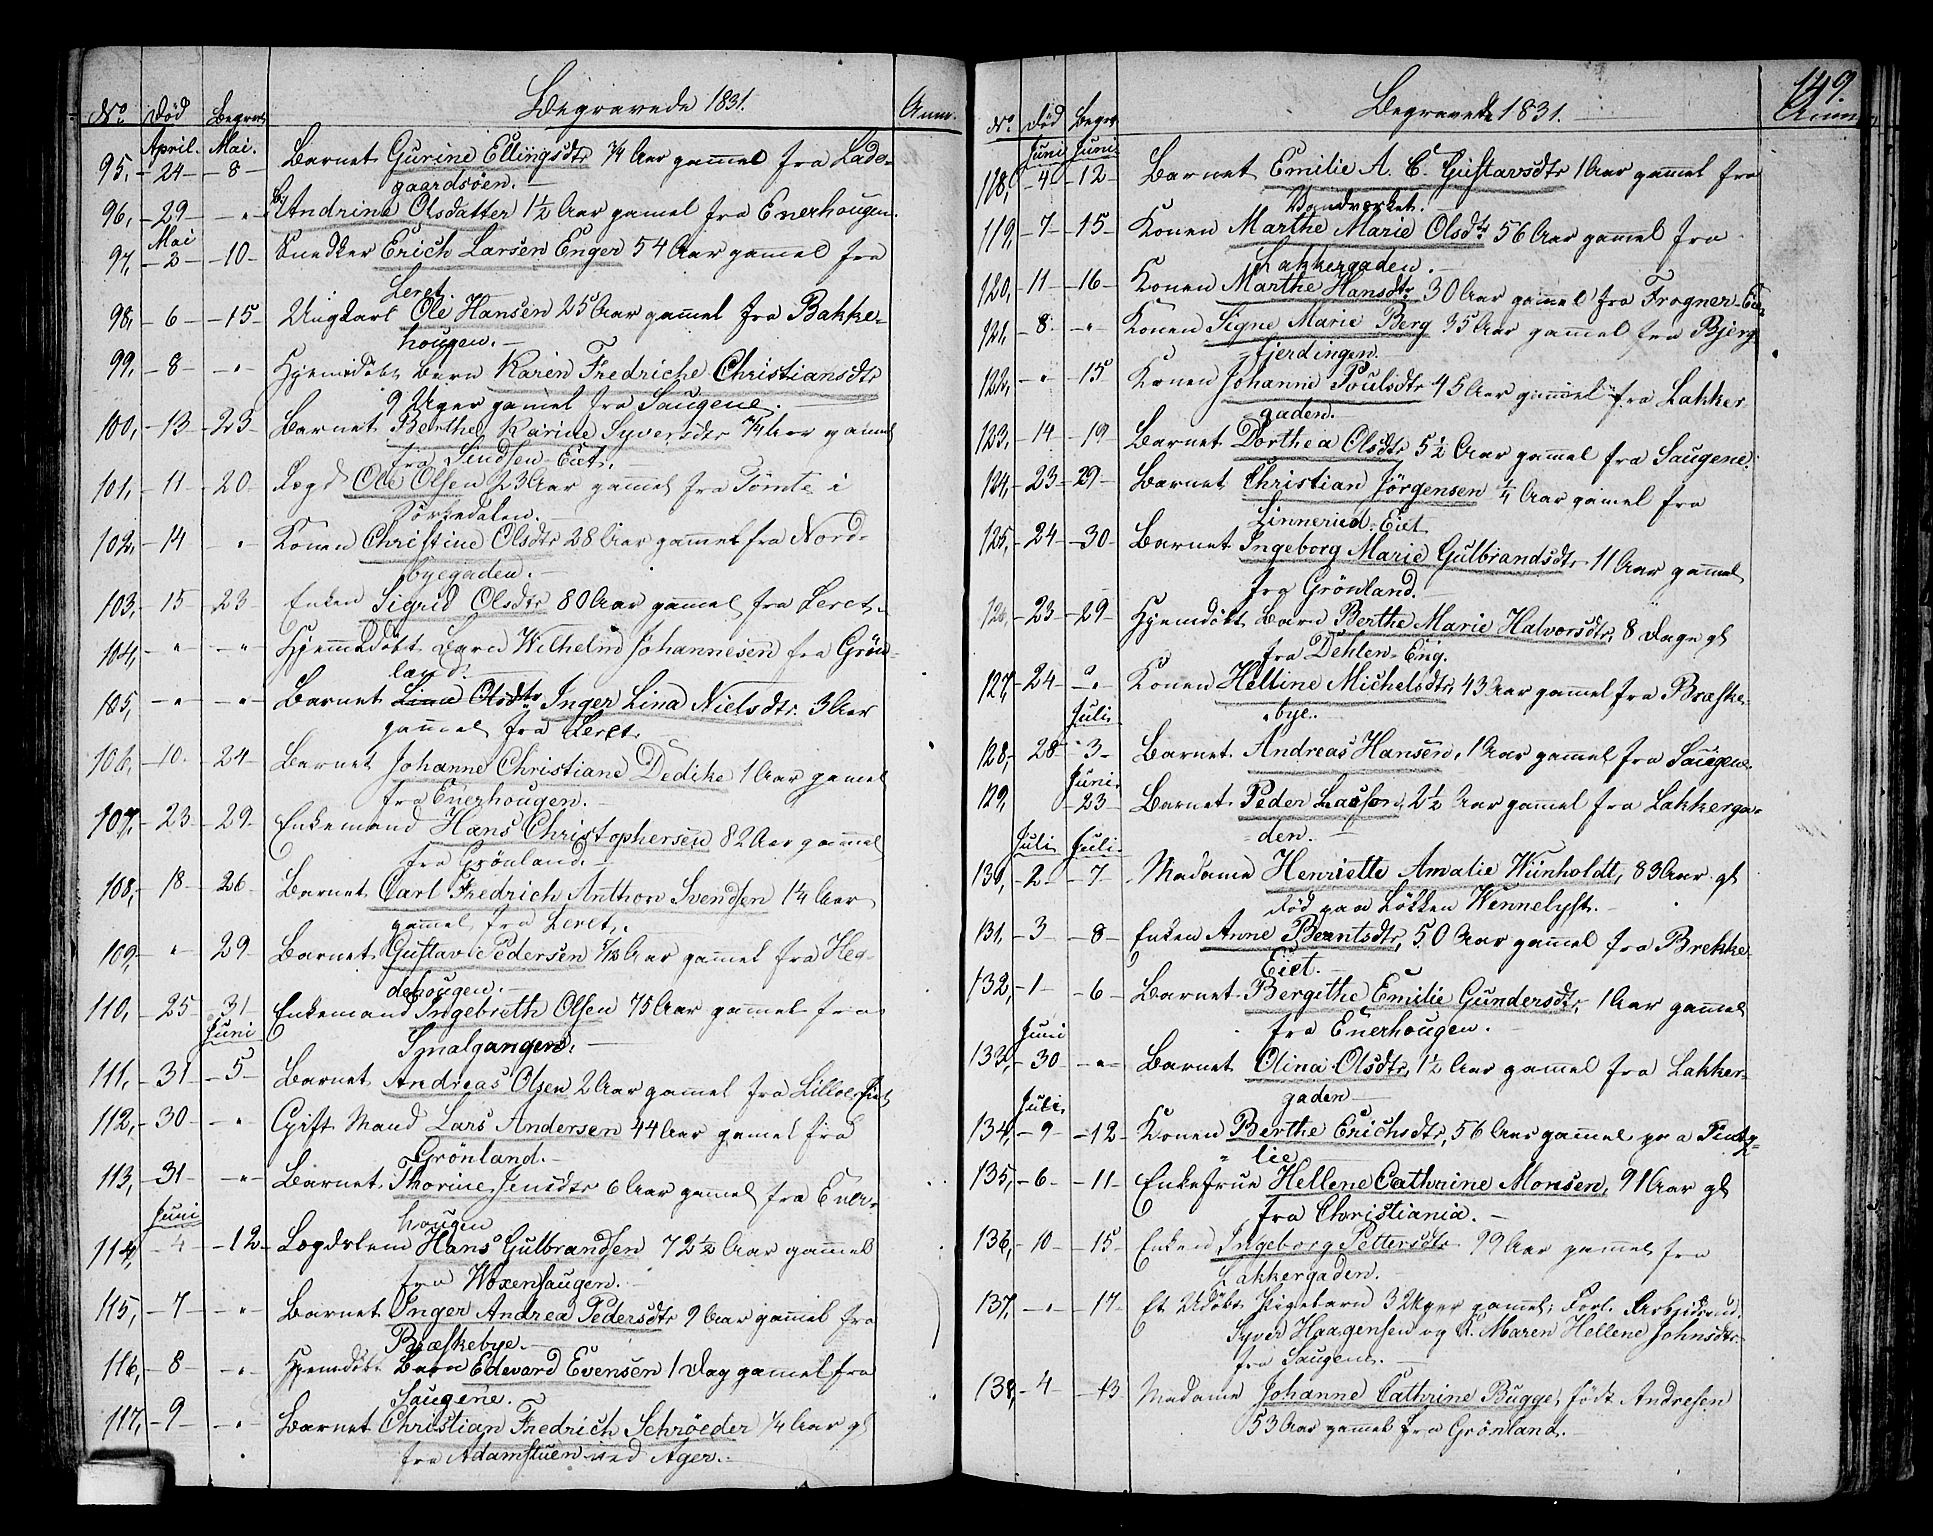 Begravede 1831.
No. Død Begrav. Anm.
April. Mai.
95, 24 8 Barnet Gurine Ellingsdtr 3/4 Aar gammel fra Lade-
gaardsöen.
96, 29 " Andrine Olsdatter 1½ Aar gamel fra Enerhougen.
Mai
97, 2 10 Snedker Erich Larsen Enger 54 Aar gamel fra
Leret.
98, 6 15 Ungkarl Ole Hansen 25 Aar gammel fra Bakke-
hougen.
99, 8 " Hjemedöbt Barn Karen Fredriche Christiansdtr
9 Uger gamel fra Saugene.
100, 13 23 Barnet Berthe Karine Syversdtr 3/4 Aar gamel
fra Sindsen Eiet.
101, 11 20 Lægd Ole Olsen 23 Aar gamel fra Tömte i
Sörkedalen.
102, 14 " Konen Christine Olsdtr 28 Aar gammel fra Nord-
byegaden.
103, 15 23 Enken Sigrid Olsdtr 80 Aar gamel fra Leret.
104, " " Hjemmedöbt Barn Wilhelm Johannesen fra Grön-
land.
105, " " Barnet Lina Olsdtr Inger Lina Nielsdtr. 3 Aar
gammel fra Leret.
106, 10. 24 Barnet Johanne Christiane Dedike 1 Aar gamel
fra Enerhougen.
107, 23 29 Enkemand Hans Christophersen 82 Aar gammel
fra Grönland.
108, 18 26 Barnet Carl Fredrich Anthon Svendsen 1¼ Aar
gammel fra Leret.
109, " 29 Barnet Gustav Pedersen Aar gammel fra Heg-
dehougen.
110, 25 31 Enkemand Ingebreth Olsen 75 Aar gammel fra
Juni
Smalgangen.
111, 31 5 Barnet Andreas Olsen 2 Aar gammel fra Lilloe Eiet
112, 30 " Gift Mand Lars Andersen 44 Aar gamel fra
Grönland.
113, 31 " Barnet Thorine Jensdtr 6 Aar gamel fra Ener-
hougen
Juni
114, 4 12 Lægdslem Hans Gulbrandsen 72½ Aar gammel
fra Woxensaugen.
115, 7 " Barnet Inger Andrea Pedersdtr 9 Aar gammel fra
Bræskebye.
116, 8 " Hjemdöbt Barn Edevard Evensen 1 Dag gammel fra
Saugene.
117, 9 " Barnet Christian Fredrich Schröeder ¼ Aar gl
fra Adamstuen ved Ager.
149.
Begravede 1831.
No. Død Begr. Anm
Juni Juni.
118, 4 12 Barnet Emilie A. C. Gustavsdtr 1 Aar gammel fra
Vandværket.
119, 7 15 Konen Marthe Marie Olsdtr 56 Aar gammel fra
Lakkergaden.
120, 11 16 Konen Marthe Hansdtr 30 Aar gamel fra Frogner-Eie
121, 8. " Konen Signe Marie Berg 35 Aar gammel fra Bjerg-
fjerdingen.
122, " 15 Konen Johanne Poulsdtr 45 Aar gammel fra Lakker-
gaden.
123, 14 19 Barnet Dorthea Olsdtr 5½ Aar gammel fra Saugene.
124, 23 29 Barnet Christian Jörgensen ¼ Aar gamel fra
Linnerud-Eiet
125, 24 30 Barnet Ingeborg Marie Gulbrandsdtr 11 Aar gammel
fra Grönland.
126, 23 29 Hjemdöbt Barn Berthe Marie Halvorsdtr, 8 Dage gl
fra Dehlen-Eng.
127, 24 " Konen Helline Michelsdtr, 43 Aar gammel fra Bræske-
bye.
Juli
128, 28 3 Barnet Andreas Hansen, 1 Aar gammel fra Saugene.
Juni.
129, 23 Barnet Peder Lassen, 2½ Aar gammel fra Lakkerga-
den.
Juli Juli.
130, 2 7 Madame Henriette Amalie Wünholdt, 83 Aar gl
död paa Lökken Wennelyst.
131, 3 8 Enken Anne Berntsdtr, 50 Aar gammel fra Brekke-
Eiet.
132, 1 6 Barnet Bergithe Emilie Gundersdtr, 1 Aar gammel
fra Enerhougen.
Juni
133, 30 " Barnet Olina Olsdtr, 1½ Aar gammel fra Lakker-
gaden
Juli.
134, 9 12 Konen Berthe Erichsdtr, 56 Aar gammel paa
lie
135, 6 11 Enkefrue Hellene Cathrine Monsen, 91 Aar gl
fra Christiania.
136, 10 15 Enken Ingeborg Pettersdtr 99 Aar gammel fra
Lakkergaden.
137, " 17 Et Udöbt Pigebarn 3 Uger gammel, Forl. Arbejdsmd.
Syver Haagensen og K. Maren Hellene Johnsdtr
fra Saugene.
138, 4 13 Madame Johanne Cathrine Bugge, födt Andresen
53 Aar gammel fra Grönland.